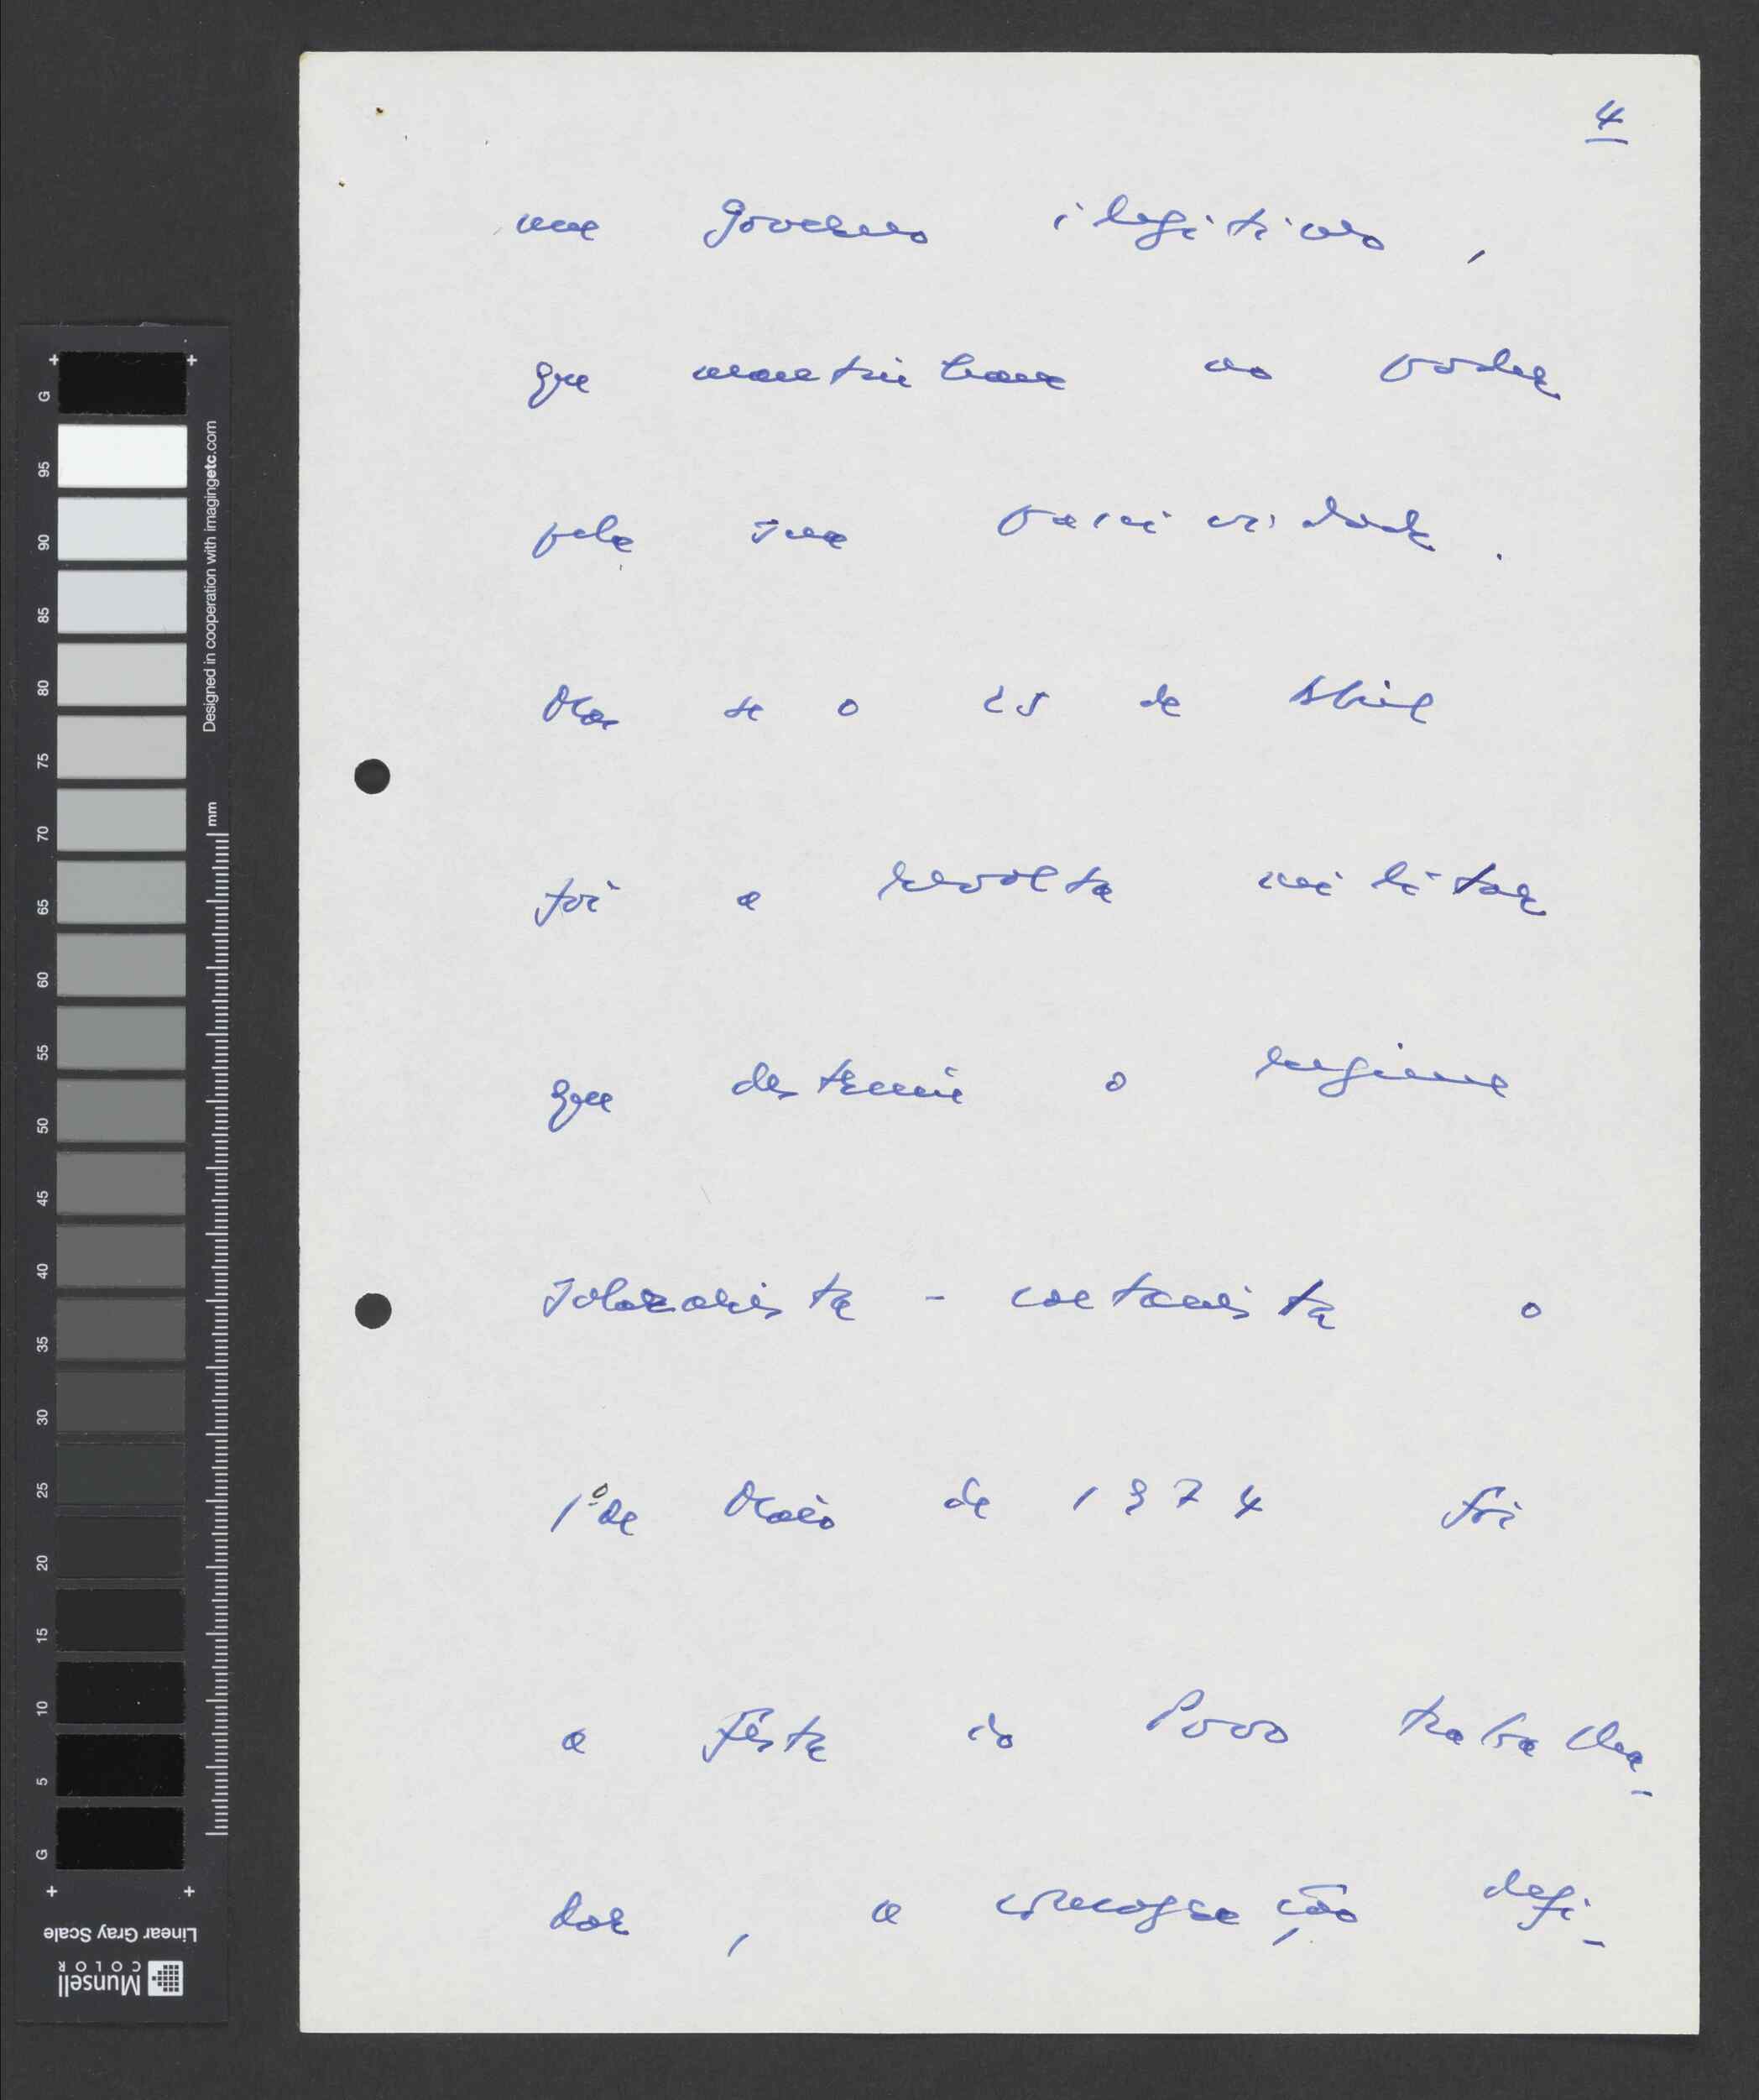 4
um Governo ilegitimo,
que mantinham no poder
pela sua passividade.
Mas se o 25 de Abril
foi a revolta militar
que destruiu o regime
salazarista - caetanista o
1º de Maio de 1974 foi
a Festa do Povo trabalha-
dor, a consagração defi-
G
95
90
85
80
75
70
65
60
55
50
45
40
35
30
25
20
15
10
5
G
Designed in cooperation with imagingetc.com
mm
Linear Gray Scale
Munsell
COLOR